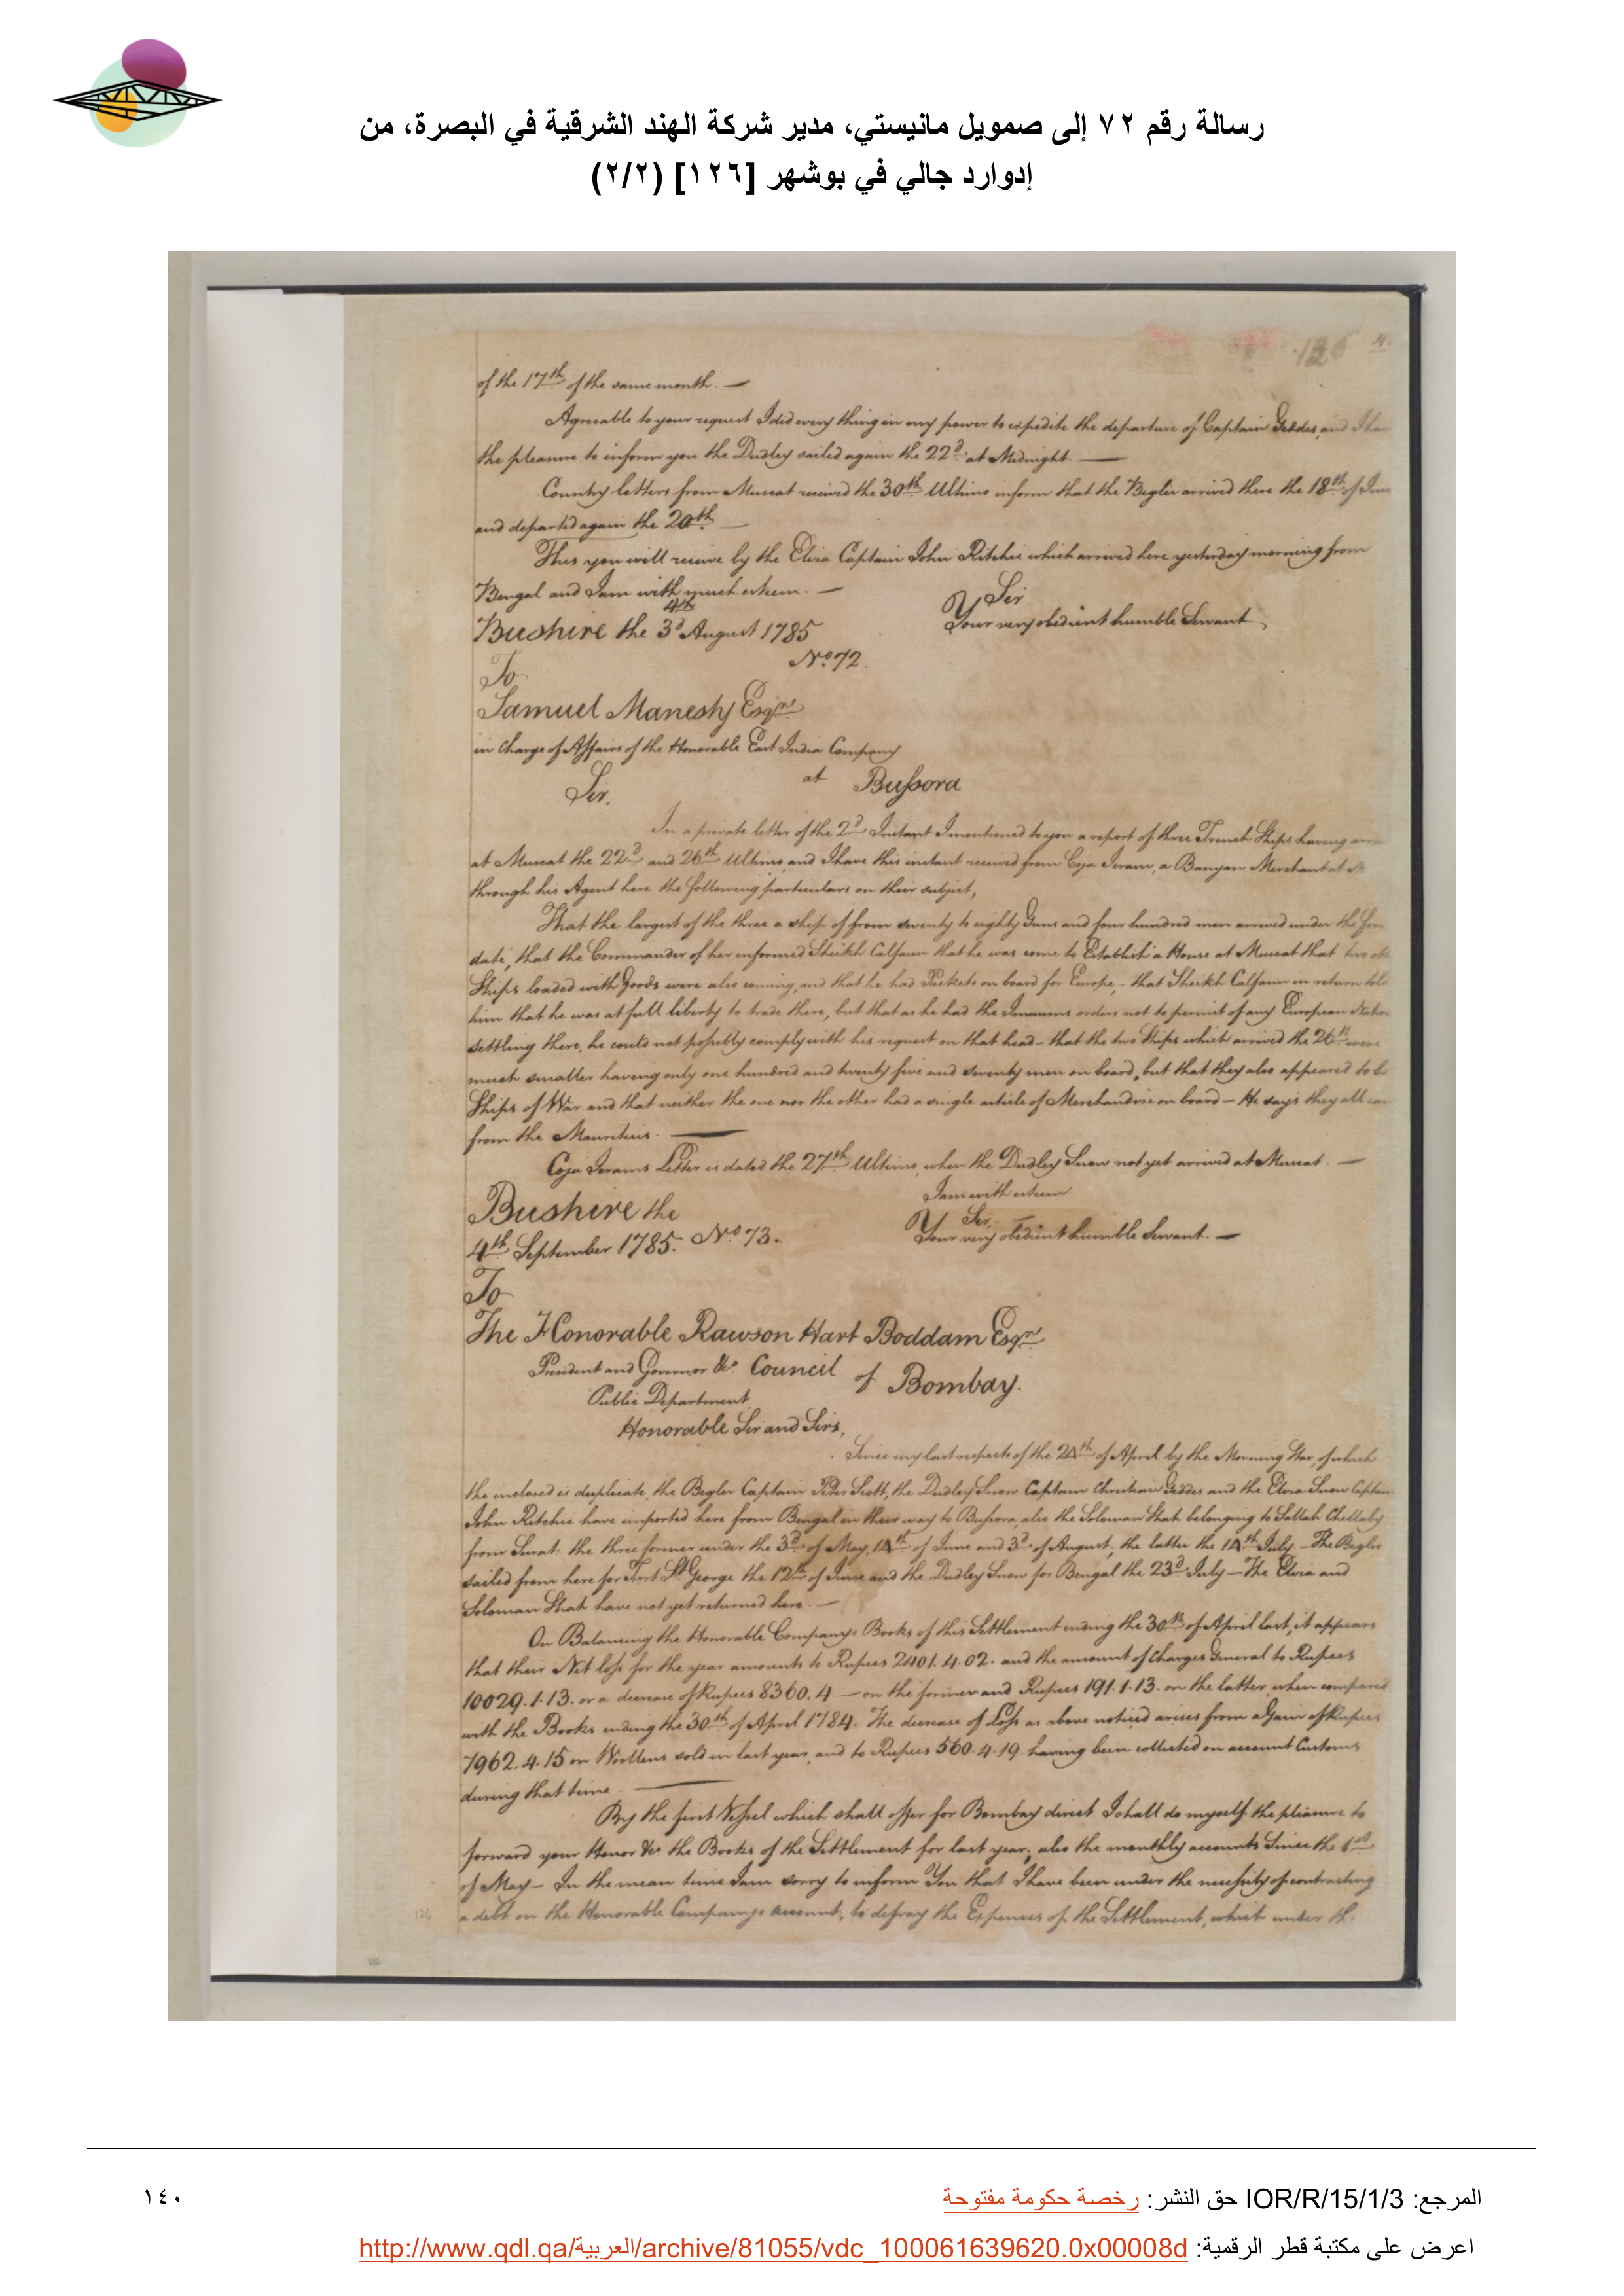 رسالة رقم ٧٢ إلى صمويل مانيستي، مدير شركة الهند الشرقية في البصرة، من
إدوارد جالي في بوشهر [١٢٦] (٢/٢)
126
of the 17th of the same month. —
Agreeable to your request I did every thing in my power to expedite the departure of Captain Geddes, and I
the pleasure to inform you the Dudley sailed again the 22d at Midnight. —
Country letters from Muscat received the 30th Ultimo inform that the Begler arrived there the 18th of
and departed again the 20th —
This you will receive by the Eliza Captain John Ritchie which arrived here yesterday morning from
Bengal and I am with much esteem. —
Sir
4th
Your very obedient humble Servant
Bushire the 3d August 1785
No. 72.
To
Samuel Manesty Esqre
in Charge of Affairs of the Honorable East India Company
at Bussora
Sir,
In a private letter of the 2d Instant I mentioned to you a report of three French Ships having
at Muscat the 22d and 26th Ultimo, and I have this instant received from Coja Jeram, a Banyan Merchant at
through his Agent here the following particulars on their subject,
That the largest of the three a ship of from seventy to eighty Guns and four hundred men arrived under the
date, that the Commander of her informed Sheikh Calfaun that he was come to Establish a House at Muscat that two
Ships loaded with Goods were also coming, and that he had Packets on board for Europe, – that Sheikh Calfaun in return told
him that he was at full liberty to trade there, but that as he had the Imaums orders not to permit of any European
settling there, he could not possibly comply with his request on that head – that the two Ships which arrived the 26th were
much smaller having only one hundred and twenty five and seventy men on board, but that they also appeared to be
Ships of War and that neither the one nor the other had a single article of Merchandize on board – He says they all
from the Mauritius. —
Coja Jerams Letter is dated the 27th Ultimo, when the Dudley Snow not yet arrived at Muscat. —
I am with esteem
Bushire the
Sir,
Your very obedient humble Servant. —
4th September 1785. No. 73.
To
The Honorable Rawson Hart Boddam Esqre
President and Governor &c Council of Bombay.
Public Department
Honorable Sir and Sirs,
Since my last respects of the 24th of April by the Morning Star, of which
the enclosed is duplicate, the Begler Captain Peter Scott, the Dudley Snow Captain Christian Geddes and the Eliza Snow Captain
John Ritchie have imported here from Bengal in their way to Bussora, also the Soloman Shah belonging to Sallah Chellaby
from Surat. the three former under the 3d of May, 14th of June and 3d of August, the latter the 14th July. – The Begler
sailed from here for Fort St George the 12th of June and the Dudley Snow for Bengal the 23d July – The Eliza and
Soloman Shah have not yet returned here. —
On Balancing the Honorable Companys Books of this Settlement ending the 30th of April last, it appears
that their Net loss for the year amounts to Rupees 2401.4.02. and the amount of Charges General to Rupees
10029.1.13. or a decrease of Rupees 8360.4 — on the former and Rupees 191.1.13. on the latter, when compared
with the Books ending the 30th of April 1784. The decrease of Loss as above noticed arises from a Gain of Rupees
7962.4.15 on Woollens sold in last year, and to Rupees 560.4.19 having been collected on account Customs
during that time. —
By the first Vessel which shall offer for Bombay direct I shall do myself the pleasure to
forward your Honor &c the Books of the Settlement for last year; also the monthly accounts Since the 1st
of May – In the mean time I am sorry to inform You that I have been under the necessity of contracting
a debt on the Honorable Companys account, to defray the Expences of the Settlement, which under
المرجع: IOR/R/15/1/3 حق النشر: رخصة حكومة مفتوحة
١٤٠
اعرض على مكتبة قطر الرقمية: http://www.qdl.qa/العربية/archive/81055/vdc_100061639620.0x00008d